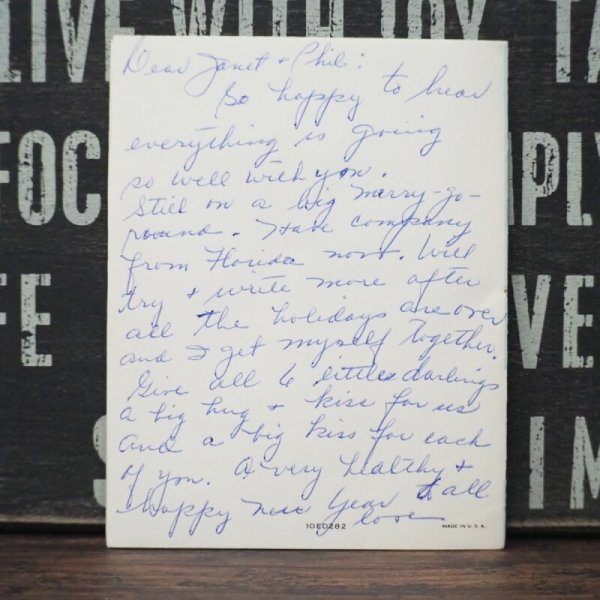 LIVE WITH JOY TA
FOC
MPLY
FE
VE
S
IM
Dear Janet + Phil:
So happy to hear
everything is going
so well with you.
Still on a big merry-go-
round. Have company
from Florida now. Will
try + write more after
all the holidays are over
and I get myself together.
Give all 6 little darlings
a big hug + kiss for us
and a big kiss for each
of you. A very healthy +
happy new year to all
love
10ED282
MADE IN U.S.A.